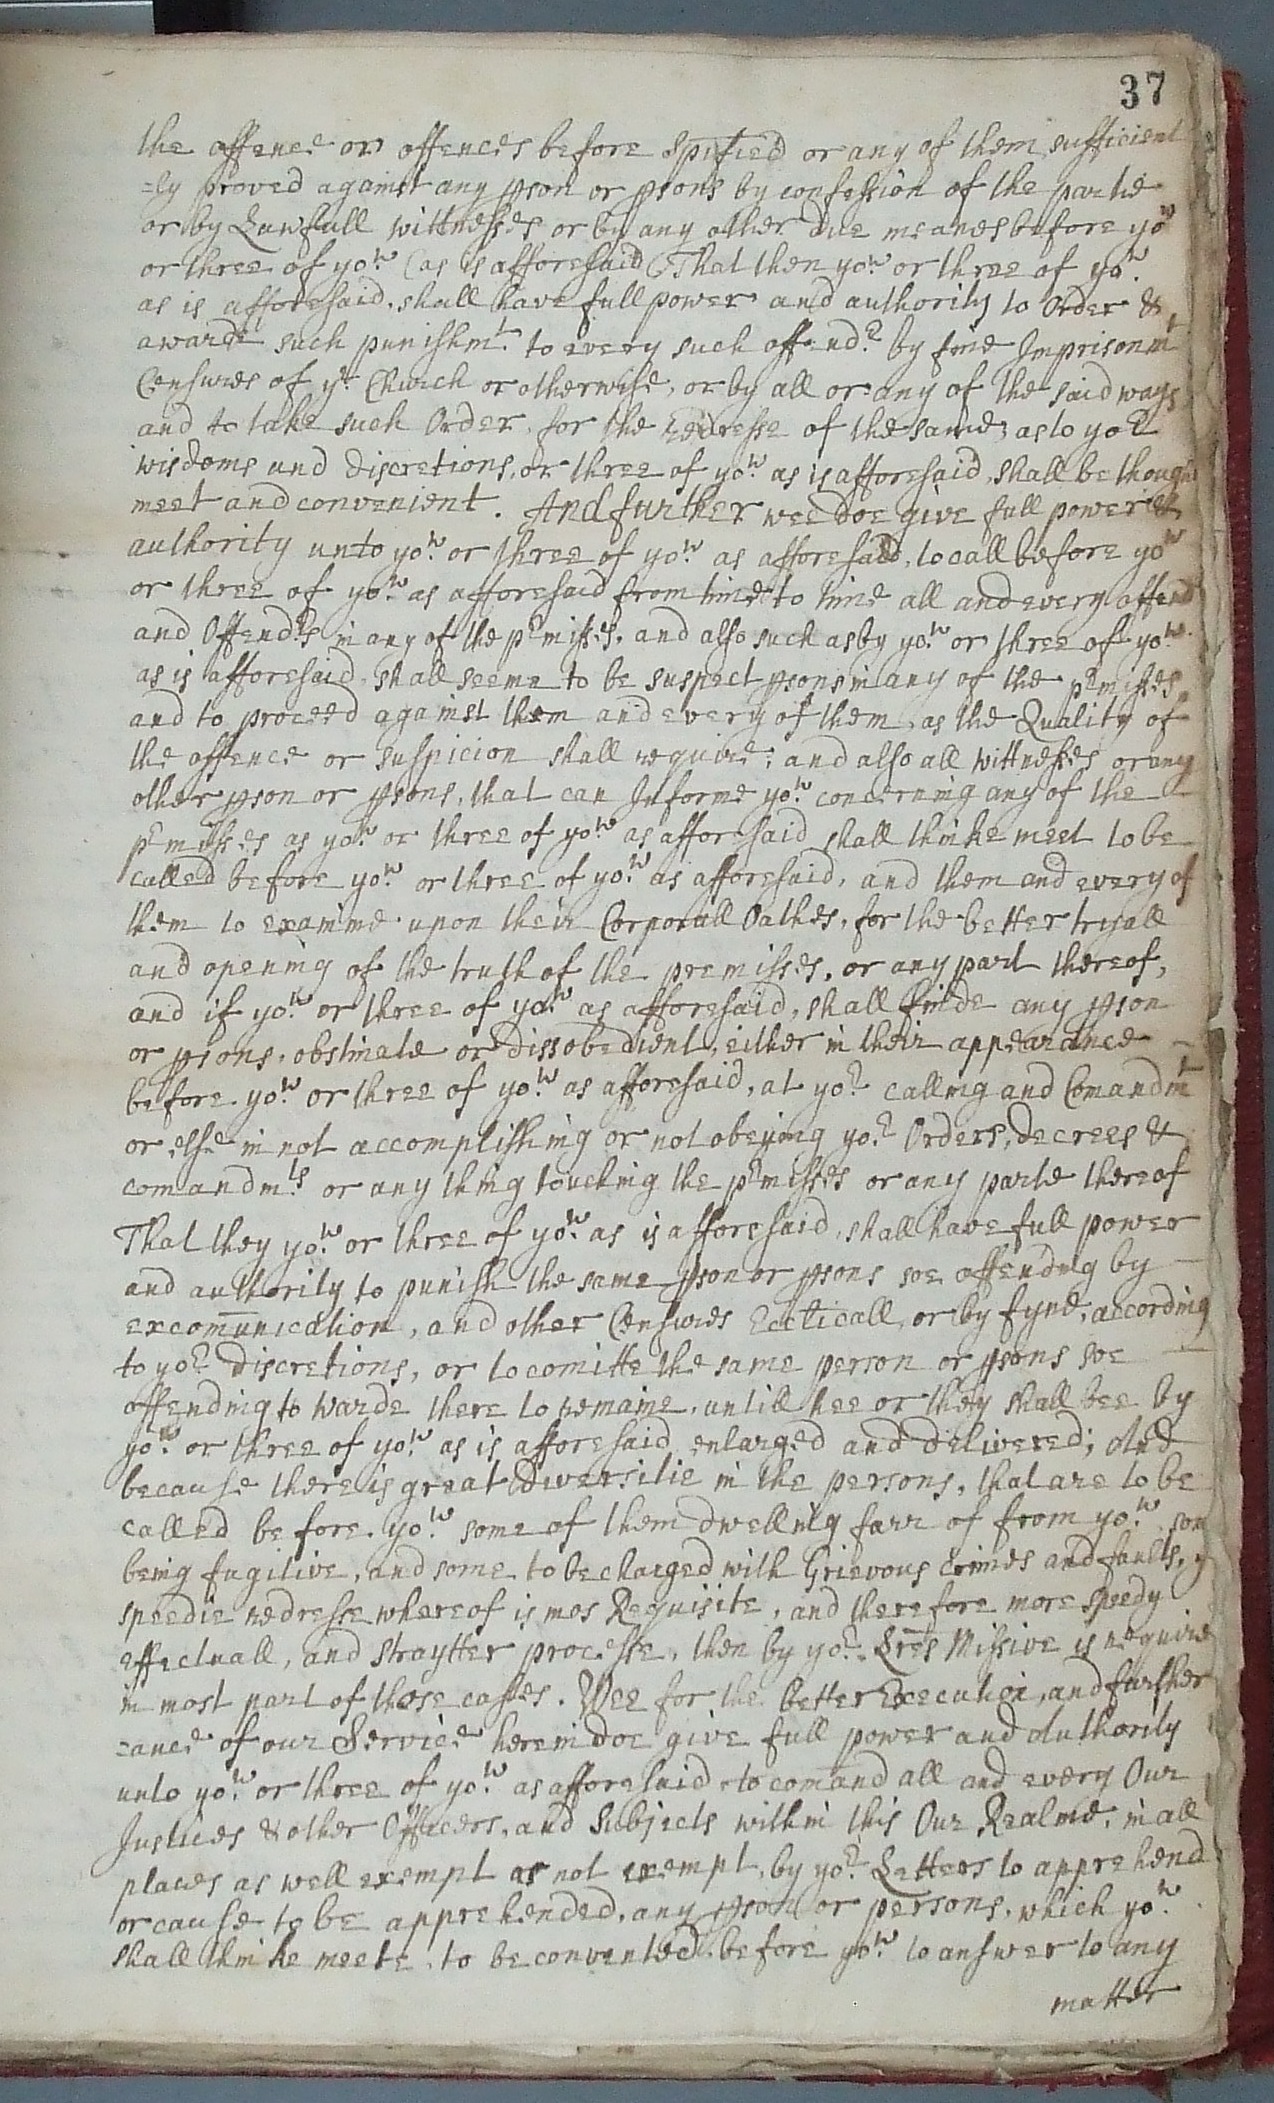 37
the offence or offences before Spified or any of them sufficient
=ly proved against any pson or psons by confession of the partie
or by Lawfull wittnesses or by any other due meanes before yow
or three of yow (as is afforesaid) That then yow or three of yow
as is afforesaid, shall have full power and authority to Order &
award such punishmt. to every such offendr by fine Imprisonmt
Censures of ye Church or otherwise, or by all or any of the said ways
and to take such Order, for the redresse of the same; as to yor
wisdoms and discretions, or three of yow as is afforesaid, shall be though
meet and convenient. And further wee doe give full power &
authority unto yow or three of yow as afforesaid, to call before yow
or three of yow as afforesaid from time to time all and every offend
and Offendrs in any of the prmisses, and also such as by yow or three of yow
as is afforesaid, shall seeme to be suspect psons in any of the prmisses
and to proceed against them and every of them, as the Quality of
the offence or suspicion shall require; and also all wittnesses or any
other pson or psons, that can Informe yow concerning any of the
prmisses as yow or three of yow as afforesaid shall thinke meet to be
called before yow or three of yow as afforesaid, and them and every of
them to examine upon their Corporall Oathes, for the better tryall
and opening of the truth of the premisses, or any part thereof,
and if yow or three of yow as afforesaid, shall finde any pson
or psons, obstinate or dissobedient, either in their appearance
before yow or three of yow as afforesaid, at yor calling and Comandmt
or else in not accomplishing or not obeying yor Orders, decrees &
comandmts or any thing touching the prmisses or any parte thereof
That they yow or three of yow as is afforesaid, shall have full power
and authority to punish the same pson or psons soe offending by
excomunication, and other Censures Eccticall, or by fyne, according
to yor discretions, or to comitte the same person or psons soe
offending to warde there to remaine, untill hee or they shall bee by
yow or three of yow as is afforesaid enlarged and delivered; And
because there is great diversitie in the persons, that are to be
called before yow some of them dwelling farr of from yow som
being fugitive, and some to be charged with Grievous crimes and faults, y
speedie redresse whereof is mos Requisite, and therefore more speedy
effectuall, and straytter processe, then by yor Lres Missive is require
in most part of those casses. Wee for the better Execution, and further
=ance of our Service herein doe give full power and Authority
unto yow or three of yow as afforesaid to comand all and every Our
Justices & other Officers, and Subjects within this Our Realme, in all
places as well exempt as not exempt, by yor Letters to apprehend
or cause to be apprehended, any pson or persons, which yow
shall thinke meete to be convented before yow to answer to any
matter